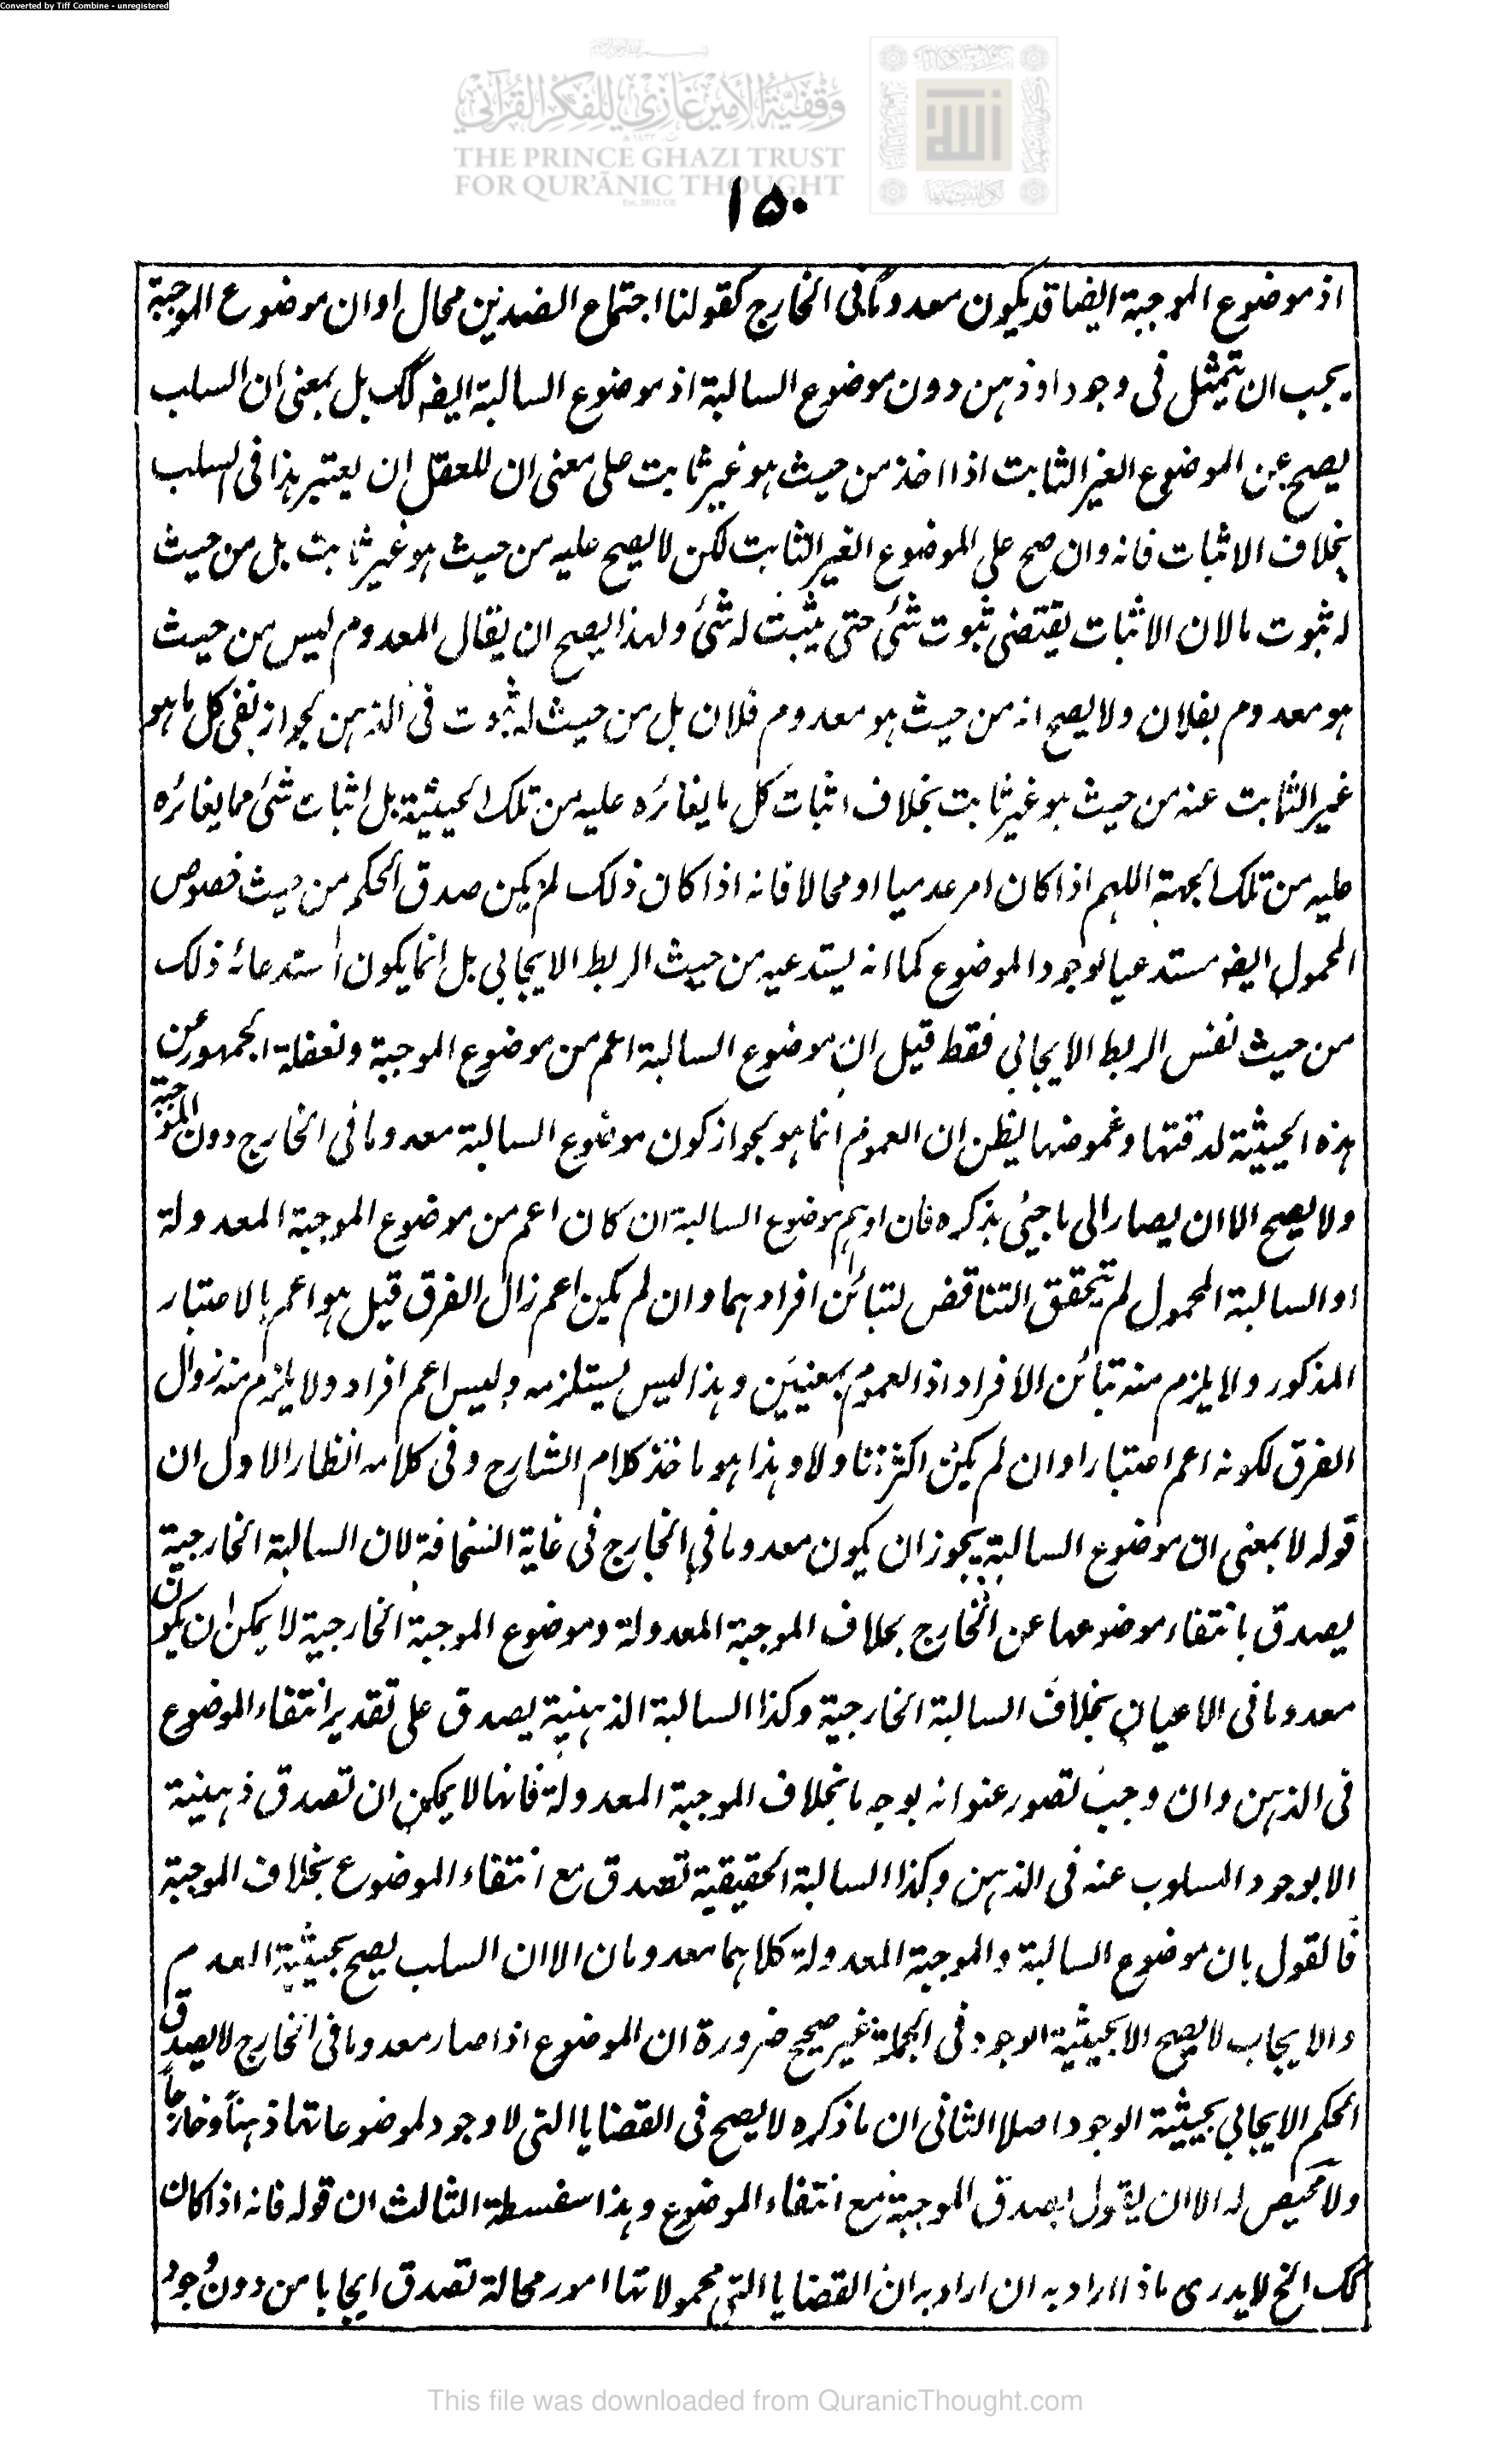 Converted by Tiff Combine - unregistered
وقفية الأمير غازي للفكر القرآني
THE PRINCE GHAZI TRUST
FOR QUR'ĀNIC THOUGHT
Est. 2012 CE
١٥٠
اذ موضوع الموجبة ايضا قد يكون معدوما فى الخارج كقولنا اجتماع الضدين محال او ان موضوع الموجبة
يجب ان يتمثل فى وجود او ذهن دون موضوع السالبة اذ موضوع السالبة ايضه كك بل بمعنى ان السلب
يصح عن الموضوع الغير الثابت اذا اخذ من حيث هو غير ثابت على معنى ان للعقل ان يعتبر هذا فى السلب
بخلاف الاثبات فانه وان صح على الموضوع الغير الثابت لكن لا يصح عليه من حيث هو غير ثابت بل من حيث
له ثبوت ما لان الاثبات يقتضى ثبوت شئ حتى يثبت له شئ ولهذا يصح ان يقال المعدوم ليس من حيث
هو معدوم بفلان ولا يصح انه من حيث هو معدوم فلان بل من حيث له ثبوت فى الذهن لجواز نفى كل ما هو
غير الثابت عنه من حيث هو غير ثابت بخلاف اثبات كل ما يغائره عليه من تلك الحيثية بل اثبات شئ مما يغائره
عليه من تلك الجهة اللهم اذا كان امر عدميا او محالا فانه اذا كان ذلك لم يكن صدق الحكم من حيث خصوص
المحمول ايضه مستدعيا لوجود الموضوع كما انه يستدعيه من حيث الربط الايجابي بل انما يكون استدعائه ذلك
من حيث نفس الربط الايجابي فقط قيل ان موضوع السالبة اعم من موضوع الموجبة ولغفلة الجمهور عن
هذه الحيثية لدقتها وغموضها يظن ان العموم انما هو لجواز كون موضوع السالبة معدوما فى الخارج دون الموجبة
ولا يصح الا ان يصار الى ما جئ بذكره فان اوهم موضوع السالبة ان كان اعم من موضوع الموجبة المعدولة
او السالبة المحمول لم يتحقق التناقض لتبائن افرادهما وان لم يكن اعم زال الفرق قيل هو اعم بالاعتبار
المذكور ولا يلزم منه تبائن الافراد اذ العموم بمعنيين وهذا ليس يستلزمه وليس اعم افراد ولا يلزم منه زوال
الفرق لكونه اعم اعتبارا وان لم يكن اكثر تناولا وهذا هو ماخذ كلام الشارح وفى كلامه انظار الاول ان
قوله لا بمعنى ان موضوع السالبة يجوز ان يكون معدوما في الخارج فى غاية السخافة لان السالبة الخارجية
يصدق بانتفاء موضوعها عن الخارج بخلاف الموجبة المعدولة وموضوع الموجبة الخارجية لا يمكن ان يكون
معدوما فى الاعيان بخلاف السالبة الخارجية وكذا السالبة الذهنية يصدق على تقدير انتفاء الموضوع
فى الذهن وان وجب تصور عنوانه بوجه ما بخلاف الموجبة المعدولة فانها لا يمكن ان تصدق ذهنية
الا بوجود المسلوب عنه فى الذهن وكذا السالبة الحقيقية تصدق مع انتفاء الموضوع بخلاف الموجبة
فالقول بان موضوع السالبة والموجبة المعدولة كلاهما معدومان الا ان السلب يصح بحيثية العدم
والايجاب لا يصح الا بحيثية الوجود فى الجملة غير صحيح ضرورة ان الموضوع اذا صار معدوما فى الخارج لا يصدق
الحكم الايجابي بحيثية الوجود اصلا الثانى ان ما ذكره لا يصح فى القضايا التى لا وجود لموضوعاتها ذهنا وخارجا
ولا محيص له الا ان يقول بصدق الموجبة مع انتفاء الموضوع وهذا سفسطة الثالث ان قوله فانه اذا كان
كك الخ لا يدرى ماذا اراد به ان اراد به ان القضايا التى محمولاتها امور محالة تصدق ايجابا من دون وجود
This file was downloaded from QuranicThought.com